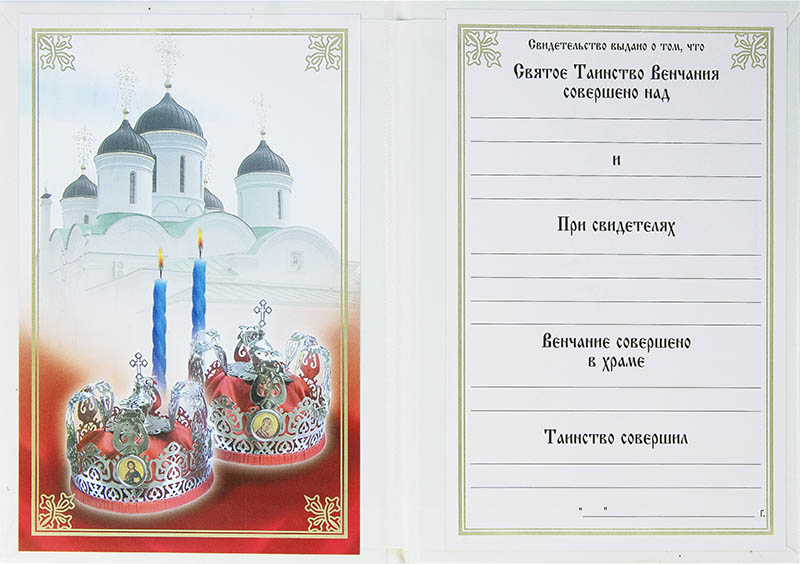 Свидетельство выдано о том, что
Святое Таинство Венчания
совершено над
и
При свидетелях
Венчание совершено
в храме
Таинство совершил
" " г.